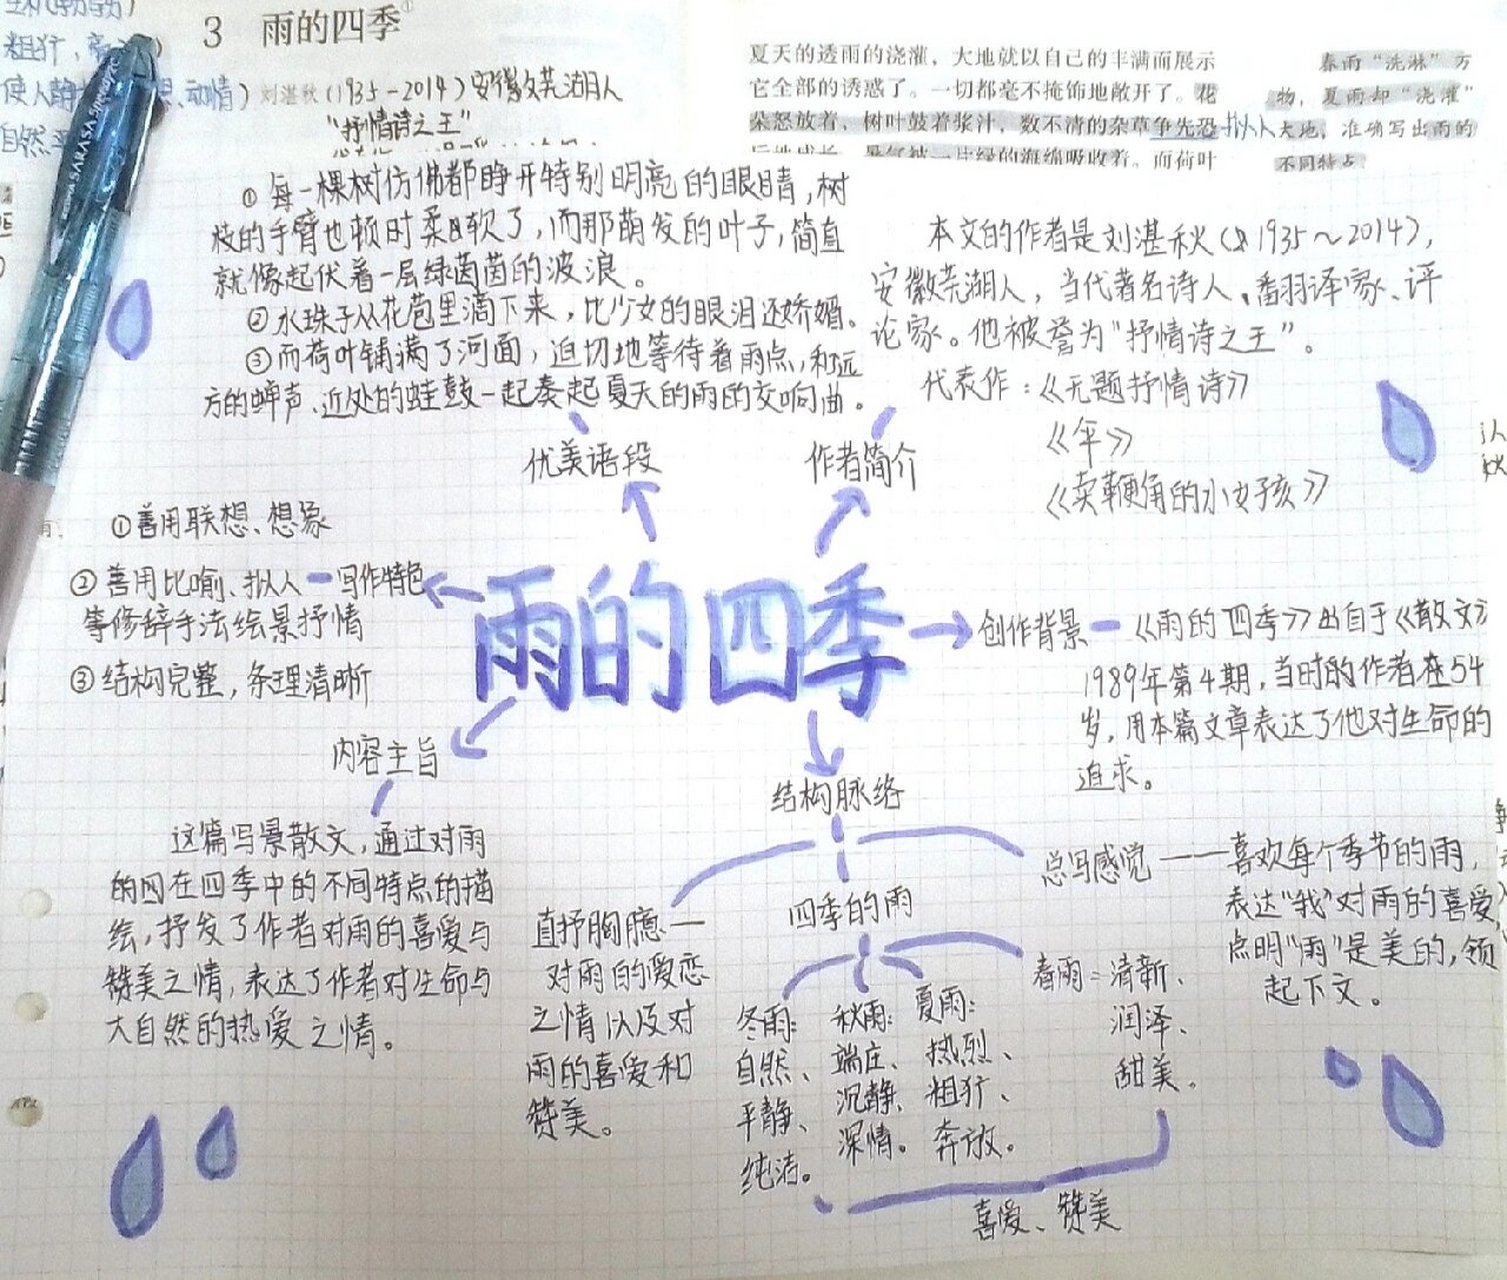 3 雨的四季①
粗犷,
使人静 动情)
自然
刘湛秋(1935-2014)安徽芜湖人
"抒情诗之王"
夏天的透雨的浇灌，大地就以自己的丰满而展示
它全部的诱惑了。一切都毫不掩饰地敞开了。花
朵怒放着，树叶鼓着浆汁，数不清的杂草争先恐
暑气被一片绿的海绵吸收着。而荷叶
拟人
春雨“洗淋”万
物，夏雨却“浇灌”
大地，准确写出雨的
不同特点
SARASA
①每一棵树仿佛都睁开特别明亮的眼睛,树
枝的手臂也顿时柔软了,而那萌发的叶子,简直
就像起伏着一层绿茵茵的波浪。
②水珠子从花苞里滴下来,比少女的眼泪还娇媚。
③而荷叶铺满了河面,迫切地等待着雨点,和远
方的蝉声、近处的蛙鼓一起奏起夏天的雨的交响曲。
优美语段
本文的作者是刘湛秋(1935～2014),
安徽芜湖人,当代著名诗人、翻译家、评
论家。他被誉为"抒情诗之王"。
代表作:《无题抒情诗》
《伞》
《卖鞭角的小女孩》
作者简介
①善用联想、想象
②善用比喻、拟人
等修辞手法绘景抒情
③结构完整,条理清晰
写作特色
雨的四季
创作背景
《雨的四季》出自于《散文》
1989年第4期,当时的作者在54
岁,用本篇文章表达了他对生命的
追求。
内容主旨
这篇写景散文,通过对雨
的在四季中的不同特点的描
绘,抒发了作者对雨的喜爱与
赞美之情,表达了作者对生命与
大自然的热爱之情。
结构脉络
总写感觉——喜欢每个季节的雨,
表达"我"对雨的喜爱
点明"雨"是美的,领
起下文。
四季的雨
春雨:清新、
润泽、
甜美。
夏雨:
热烈、
粗犷、
奔放。
秋雨:
端庄、
沉静、
深情。
冬雨:
自然、
平静、
纯洁。
直抒胸臆—
对雨的爱恋
之情以及对
雨的喜爱和
赞美。
喜爱、赞美